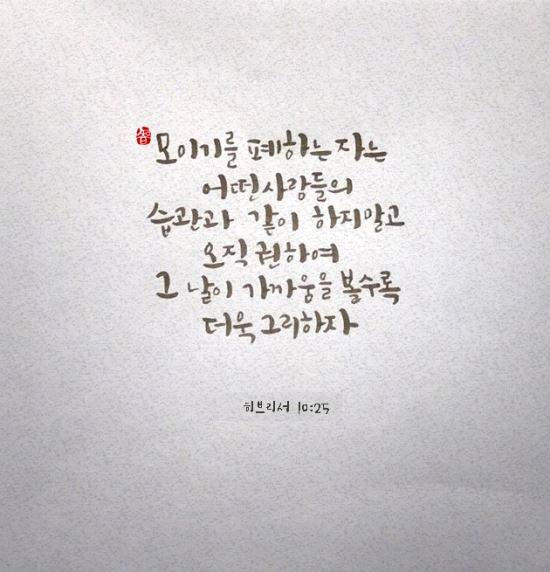 모이기를 폐하는 자는
어떤 사람들의
습관과 같이 하지말고
오직 권하여
그 날이 가까움을 볼수록
더욱 그리하자
히브리서 10:25